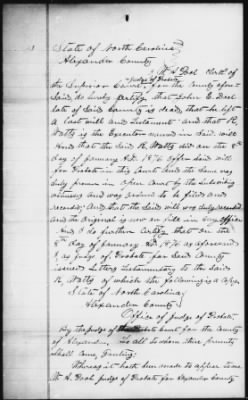 State of North Carolina
Alexander County
W. A. Pool Clerk of
& Judge of Probate
the Superior Court, for the County afore-
said, do hereby certify that John E. Deal
late of said County is dead, that he left
a last will and testament and that R.
Watts is the Executor named in said will
And that the said R. Watts did on the 8th
day of January A.D. 1876 offer said will
for Probate in this Court and the same was
duly proven in open Court by the subscribing
witnesses and was ordered to be filed and
recorded, and that the said will was duly recorded
and the original is now on file in my office
And I do further certify that on the
8th day of January A.D. 1876 as aforesaid
I, as Judge of Probate for said County
issued Letters Testamentary to the said
R. Watts of which the following is a copy
State of North Carolina
Alexander County
Office of Judge of Probate
By the Judge of Probate Court for the County
of Alexander. To all to whom these presents
shall come, Greeting:
Whereas it hath been made to appear to me
W. A. Pool Judge of Probate for Alexander County